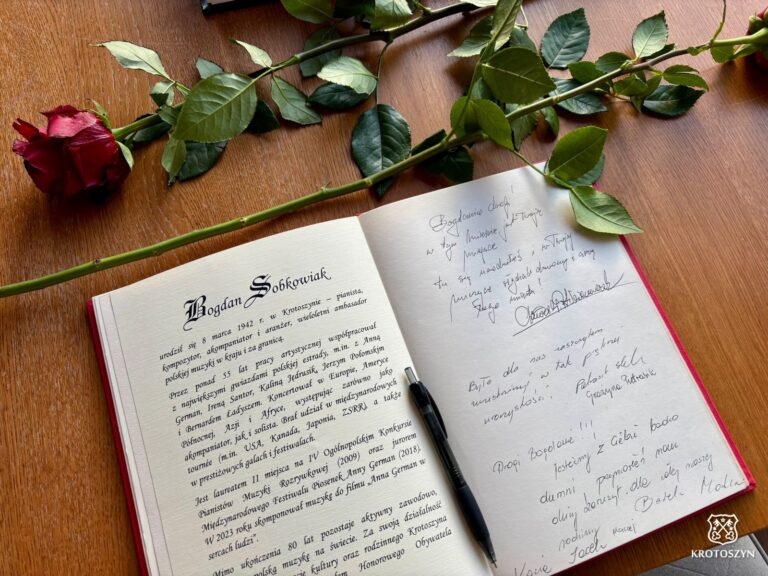 Bogdan Sobkowiak
urodził się 8 marca 1942 r. w Krotoszynie – pianista,
kompozytor, akompaniator i aranżer, wieloletni ambasador
polskiej muzyki w kraju i za granicą.
Przez ponad 55 lat pracy artystycznej współpracował
z największymi gwiazdami polskiej estrady, m.in. z Anną
German, Ireną Santor, Kaliną Jędrusik, Jerzym Połomskim
i Bernardem Ładyszem. Koncertował w Europie, Ameryce
Północnej, Azji i Afryce, występując zarówno jako
akompaniator, jak i solista. Brał udział w międzynarodowych
tournée (m.in. USA, Kanada, Japonia, ZSRR), a także
w prestiżowych galach i festiwalach.
Jest laureatem II miejsca na IV Ogólnopolskim Konkursie
Pianistów Muzyki Rozrywkowej (2009) oraz jurorem
Międzynarodowego Festiwalu Piosenek Anny German (2018).
W 2023 roku skomponował muzykę do filmu „Anna German w
sercach ludzi".
Mimo ukończenia 80 lat pozostaje aktywny zawodowo,
polską muzykę na świecie. Za swoją działalność
kultury oraz rodzinnego Krotoszyna
Honorowego Obywatela
Bogdanie drogi!
w tym
miejsce
tu się urodziłeś i
Było dla nas zaszczytem
uczestniczyć w tak pięknej
uroczystości!
Grażyna
Drogi Bogdanie!!!
Jesteśmy z Ciebie bardzo
dumni
dla całej naszej
rodziny
Jacek
KROTOSZYN